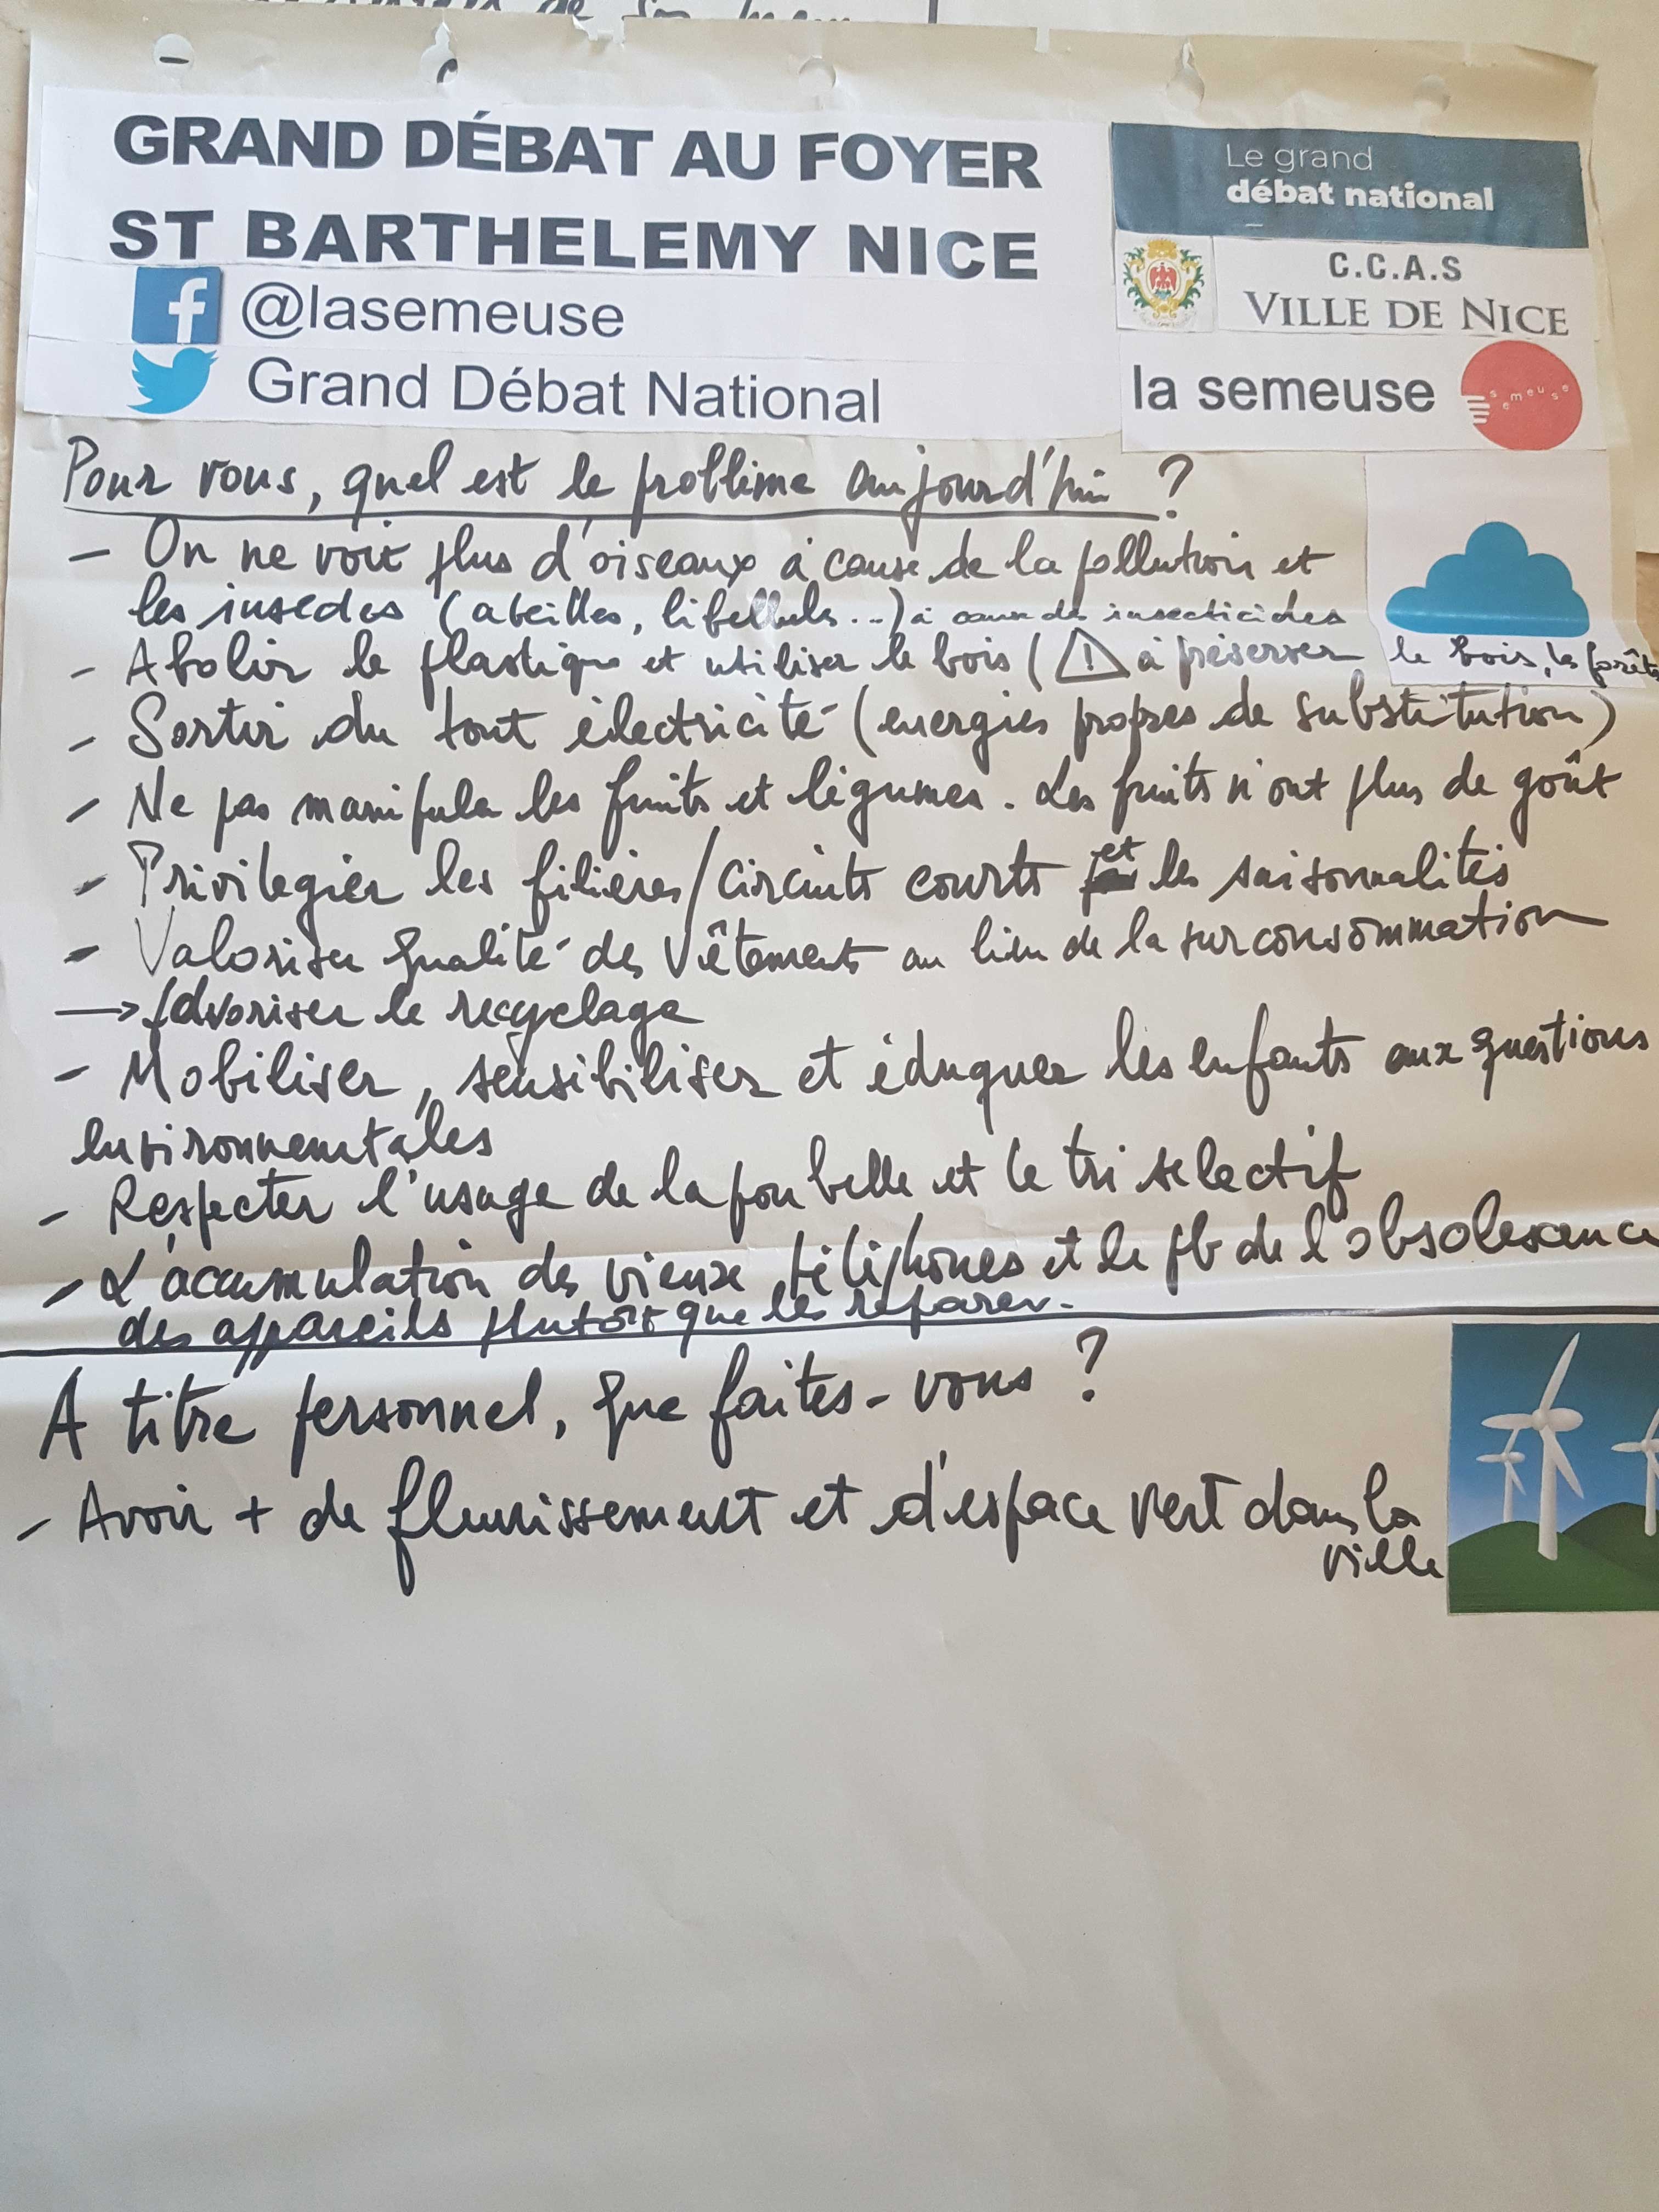 GRAND DÉBAT AU FOYER
ST BARTHELEMY NICE
@lasemeuse
Grand Débat National
Le grand
débat national
C.C.A.S
VILLE DE NICE
la semeuse
semeuse
Pour vous, quel est le problème aujourd'hui ?
- On ne voit plus d'oiseaux à cause de la pollution et
les insectes (abeilles, libellules...) à cause des insecticides
- Abolir le plastique et utiliser le bois (⚠ à préserver le bois, les forêts
- Sortir du tout électricité (énergies propres de substitution)
- Ne pas manipuler les fruits et légumes. Les fruits n'ont plus de goût
- Privilégier les filières/circuits courts et les saisonnalités
- Valoriser qualité des vêtements au lieu de la surconsommation
→ favoriser le recyclage
- Mobiliser, sensibiliser et éduquer les enfants aux questions
environnementales
- Respecter l'usage de la poubelle et le tri selectif
- L'accumulation des vieux téléphones et le pb de l'obsolescence
des appareils plutôt que les réparer.
A titre personnel, que faites-vous ?
- Avoir + de fleurissement et d'espace vert dans la
ville